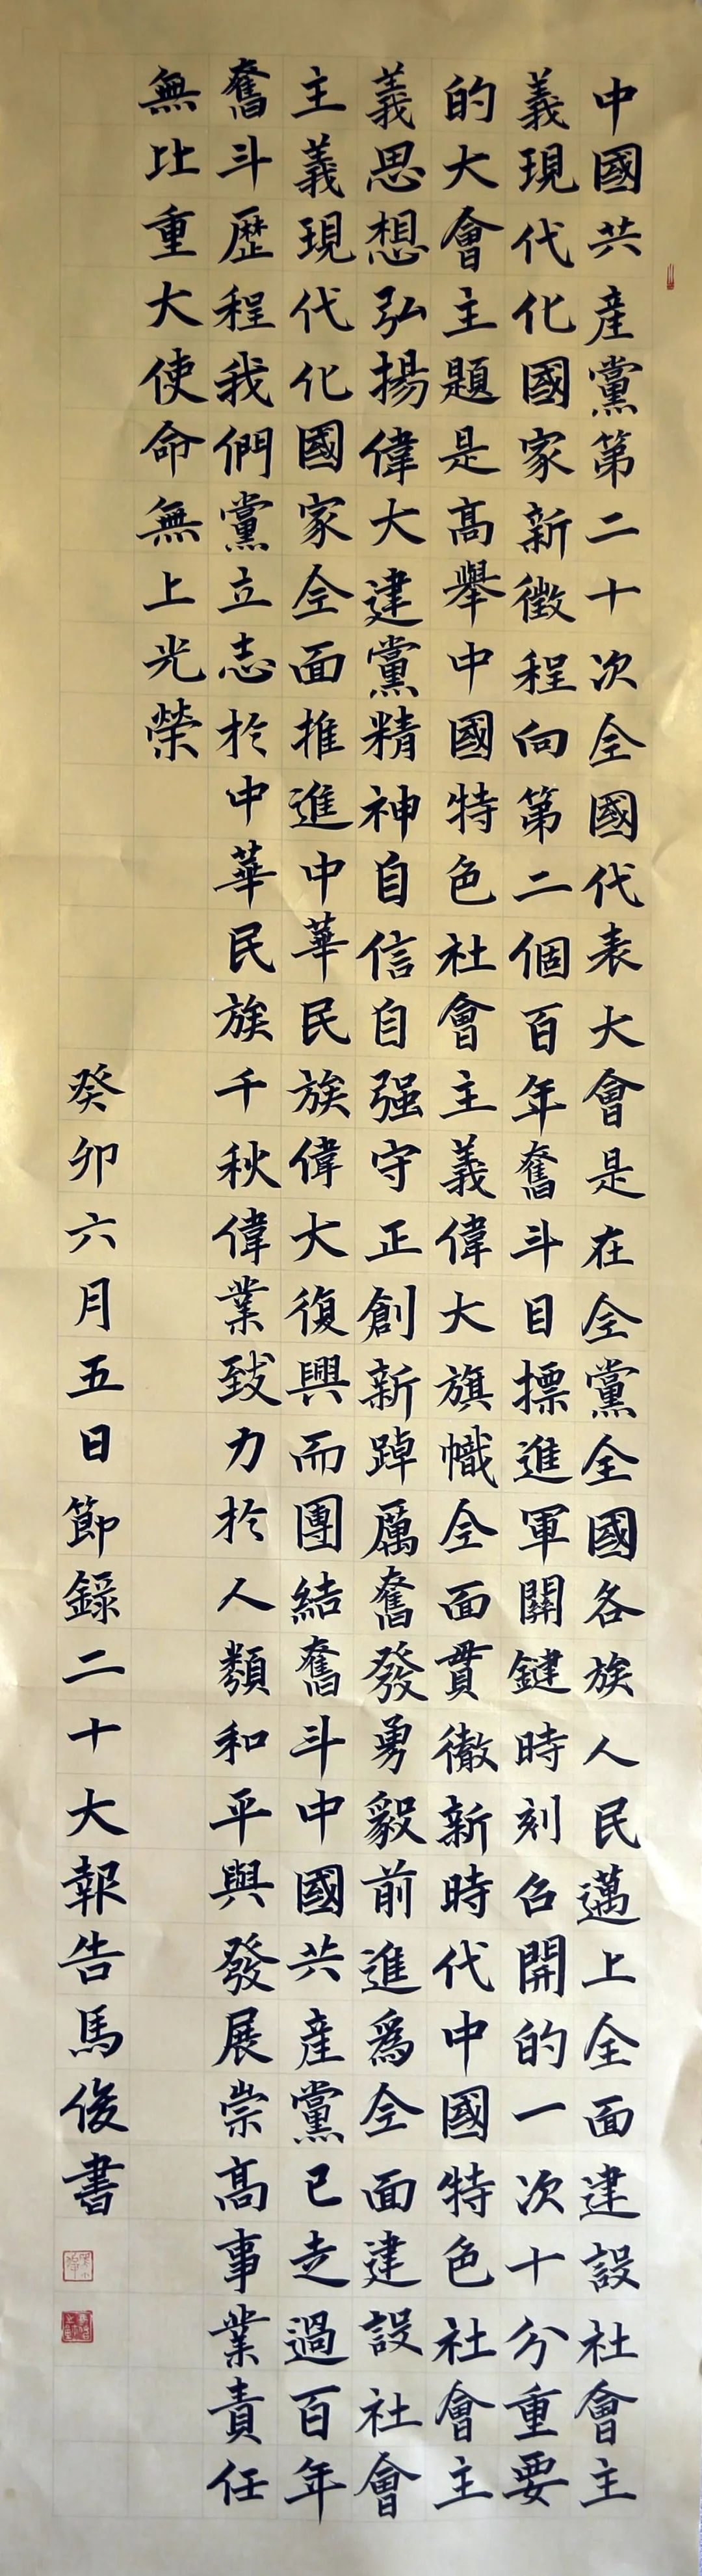 中國共產黨第二十次全國代表大會是在全黨全國各族人民邁上全面建設社會主
義現代化國家新徵程向第二個百年奮斗目標進軍關鍵時刻召開的一次十分重要
的大會主題是高舉中國特色社會主義偉大旗幟全面貫徹新時代中國特色社會主
義思想弘揚偉大建黨精神自信自强守正創新踔厲奮發勇毅前進爲全面建設社會
主義現代化國家全面推進中華民族偉大復興而團結奮斗中國共產黨已走過百年
奮斗歷程我們黨立志於中華民族千秋偉業致力於人類和平與發展崇高事業責任
無比重大使命無上光榮
癸卯六月五日節錄二十大報告馬俊書